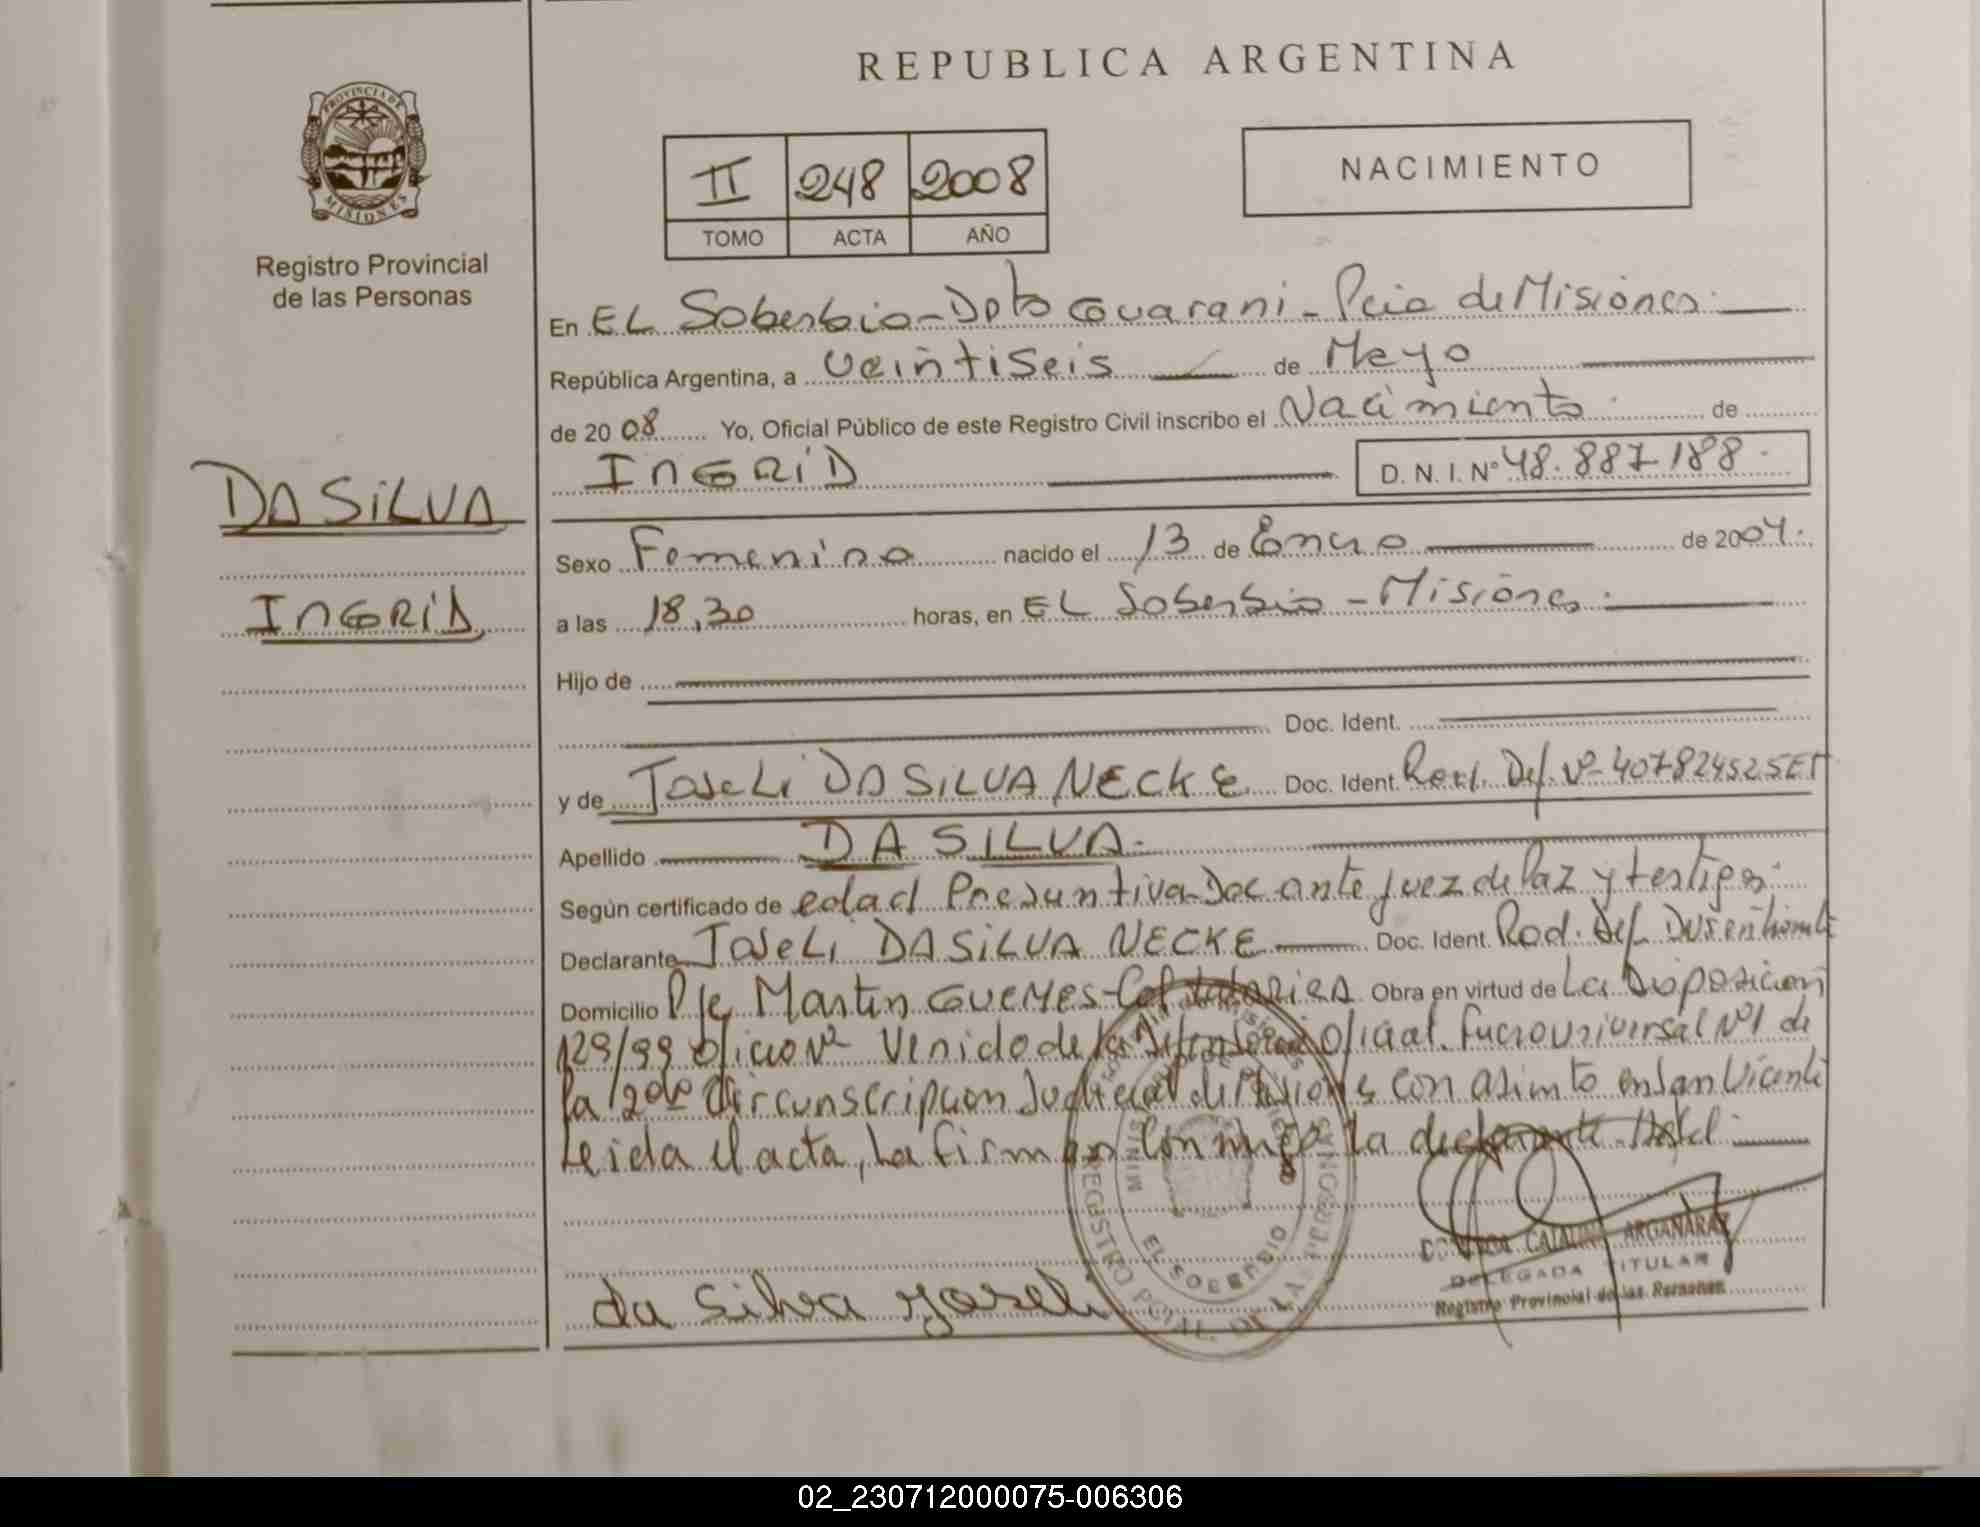 REPUBLICA ARGENTINA
PROVINCIA DE MISIONES
Registro Provincial
de las Personas
II 248 2008
TOMO ACTA AÑO
NACIMIENTO
En EL Soberbio - Dpto Guarani - Pcia de Misiones
República Argentina, a veintiseis de Mayo
de 2008 Yo, Oficial Público de este Registro Civil inscribo el Nacimiento de
INGRID D.N.I. N° 48.887.188
DA SILVA
INGRID
Sexo Femenino nacido el 13 de Enero de 2004.
a las 18,30 horas, en EL Soberbio - Misiones
Hijo de
Doc. Ident.
y de JoseLi DA SILVA NECKE Doc. Ident. N° 40782452SET
Apellido DA SILVA.
Según certificado de edad Presuntiva Doc ante Juez de Paz y testigos
Declarante JoseLi DA SILVA NECKE Doc. Ident.
Domicilio Pje Martin GUEMES Obra en virtud de La Disposicion
129/99 Oficio N° Venido de la Defensoria Oficial N°1 de
la 2da Circunscripcion Judicial de Misiones con asiento en San Vicente
Leida el acta, La firman Con migo La declarante
da Silva yoseli
CATALINA ARGAÑARAZ
DELEGADA TITULAR
Registro Provincial de las Personas
REGISTRO PCIAL. DE LAS
EL SOBERBIO
02_230712000075-006306